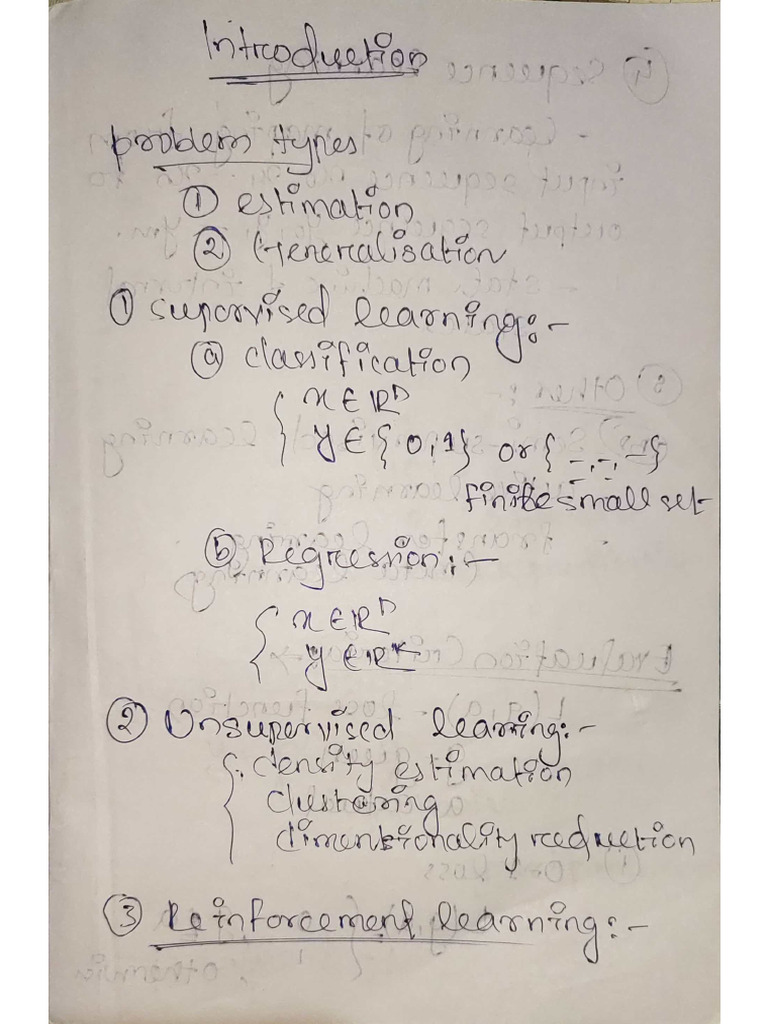 Introduction
problem types
① estimation
② Generalisation
① supervised learning:-
ⓐ classification
x ∈ ℝᴰ
y ∈ {0,1} or {-,-,-}
finite small set
ⓑ Regression:-
x ∈ ℝᴰ
y ∈ ℝᴷ
② Unsupervised learning:-
density estimation
clustering
dimentionality reduction
③ Reinforcement learning:-